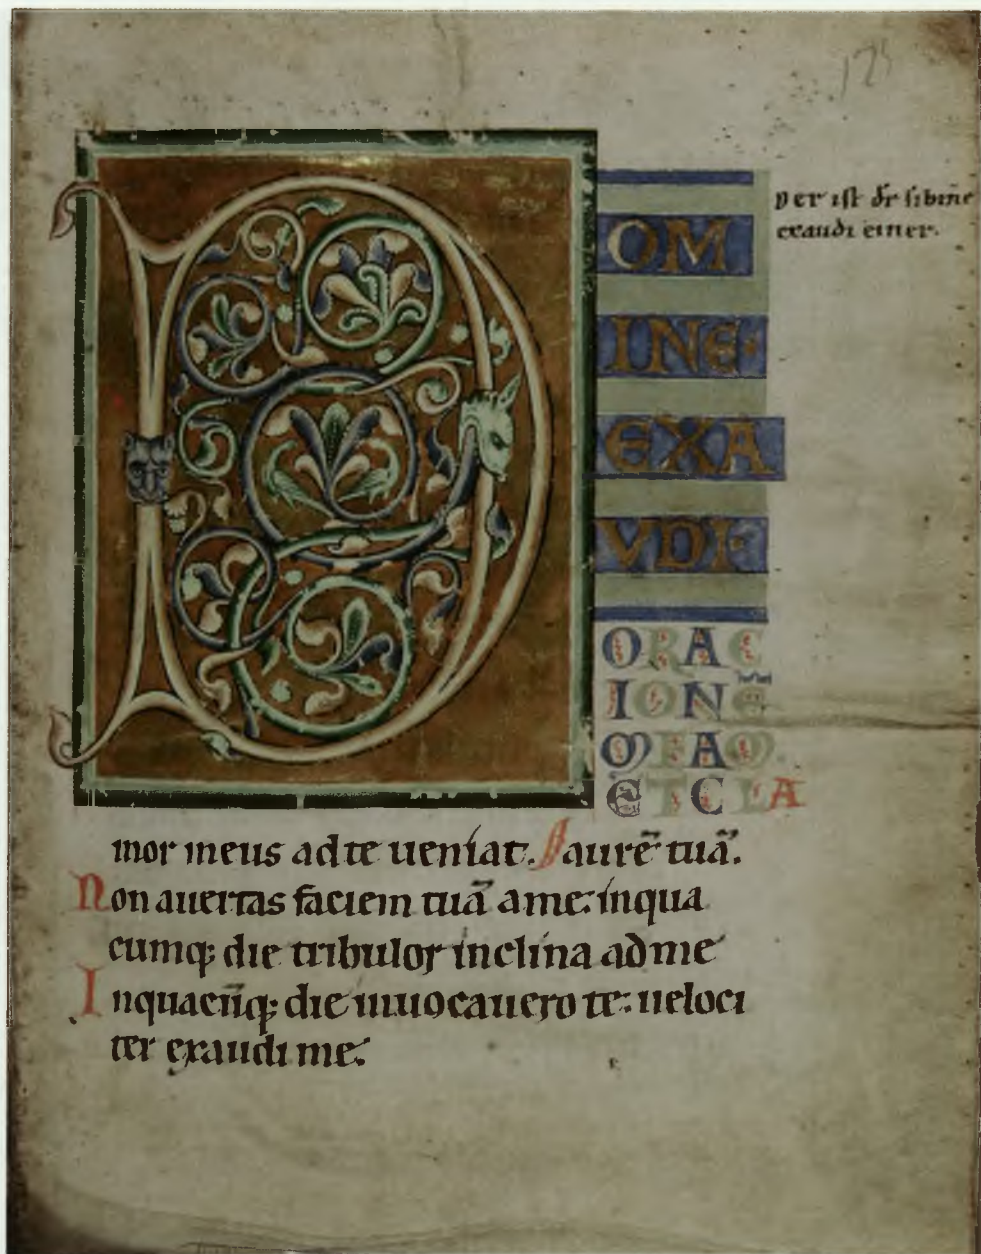 125
ver ist dr sibiñe
exaudi einer.
D
OM
INE·
EXA
VDI·
ORAC
IONĒ
MEAM.
ET CLA
mor meus ad te ueniat. aurē tuā.
Non auertas faciem tuā a me: in qua
cumq; die tribulor inclina ad me
In quacūq; die inuocauero te: ueloci
ter exaudi me: